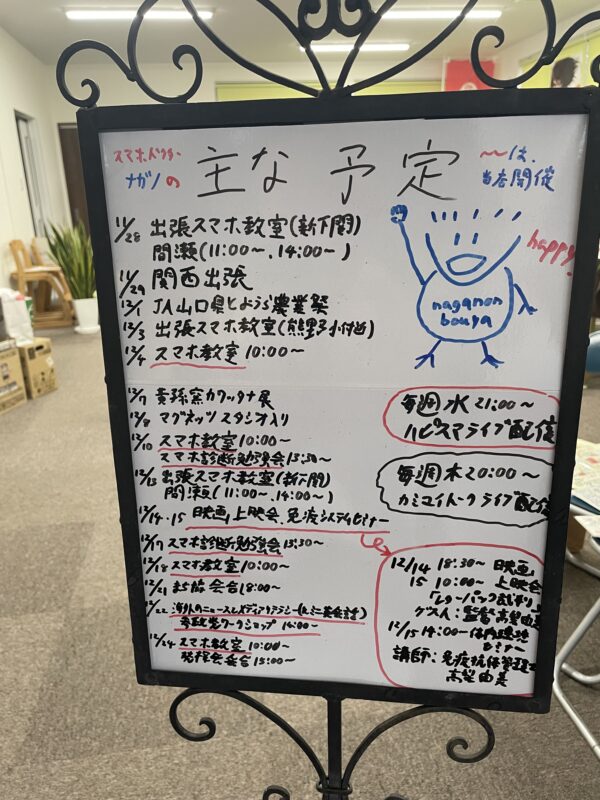 スマホドクター
ナガノの
主な予定
〜は、
当店開催
11/28 出張スマホ教室(新下関)
間瀬(11:00〜、14:00〜)
11/29 関西出張
12/1 JA山口県とようら農業祭
12/3 出張スマホ教室(熊野小付近)
12/4 スマホ教室 10:00〜
happy!
naganon
bouya
12/7 黄孫窯カワッタナ展
12/8 マグネッツ スタジオ入り
12/10 スマホ教室 10:00〜
スマホ診断勉強会 13:30〜
12/13 出張スマホ教室(新下関)
間瀬(11:00〜、14:00〜)
12/14・15 映画上映会、免疫システムセミナー
12/17 スマホ診断勉強会 13:30〜
12/18 スマホ教室 10:00〜
12/21 会合 18:00〜
12/22 海外のニュースとメディアリテラシー
ワークショップ 14:00〜
12/24 スマホ教室 10:00〜
15:00〜
毎週水 21:00〜
ハピスマライブ配信
毎週木 20:00〜
カミマイトーク ライブ配信
12/14 18:30〜 映画
15 10:00〜 上映会
「レターパック裁判」
ゲスト:監督 高梨由美
12/15 14:00〜 体内環境
セミナー
講師:免疫抗体管理士
高梨由美